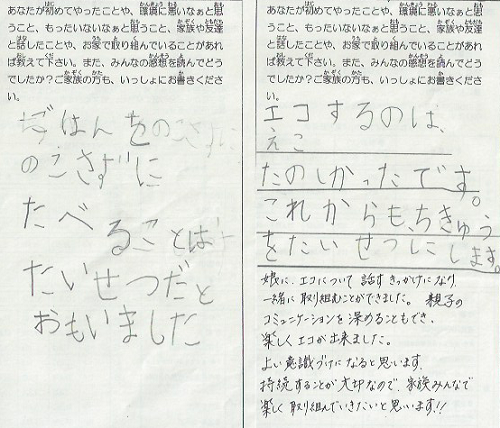 あなたが初めてやったことや、環境に悪いなぁと思
うこと、もったいないなぁと思うこと、家族や友達
と話したことや、お家で取り組んでいることがあれ
ば教えて下さい。また、みんなの感想を読んでどう
でしたか?ご家族の方も、いっしょにお書きくださ
い。
ごはんをのこさずに
のこさずに
たべることは
たいせつだと
おもいました
あなたが初めてやったことや、環境に悪いなぁと思
うこと、もったいないなぁと思うこと、家族や友達
と話したことや、お家で取り組んでいることがあれ
ば教えて下さい。また、みんなの感想を読んでどう
でしたか?ご家族の方も、いっしょにお書きくださ
い。
エコするのは、
えこ
たのしかったです。
これからも、ちきゅう
をたいせつにします。
娘に、エコについて話すきっかけになり、
一緒に取り組むことができました。親子の
コミュニケーションを深めることもでき、
楽しくエコが出来ました。
よい意識づけになると思います。
持続することが大切なので、家族みんなで
楽しく取り組んでいきたいと思います!!